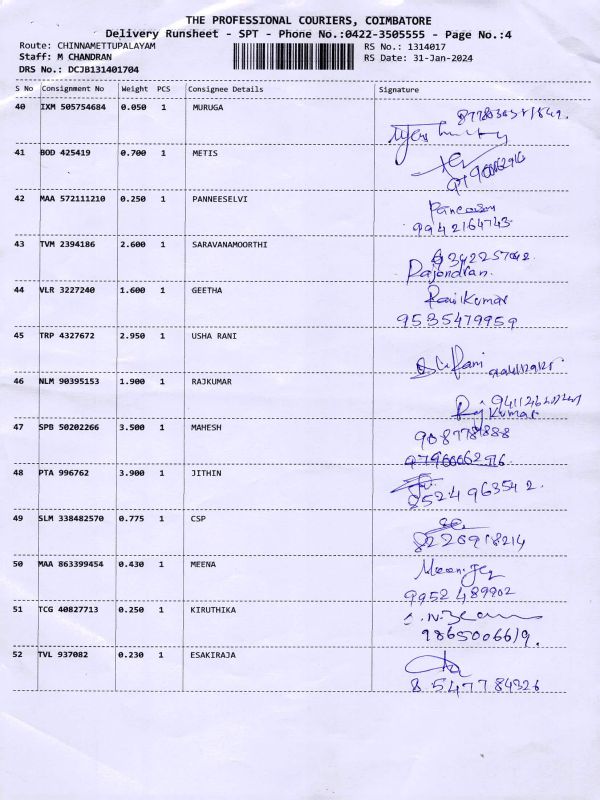 THE PROFESSIONAL COURIERS, COIMBATORE
Delivery Runsheet - SPT - Phone No.:0422-3505555 - Page No.:4
Route: CHINNAMETTUPALAYAM
RS No.: 1314017
Staff: M CHANDRAN
RS Date: 31-Jan-2024
DRS No.: DCJB131401704
S No Consignment No Weight PCS Consignee Details Signature
40 IXM 505754684 0.050 1 MURUGA
41 BOD 425419 0.700 1 METIS
42 MAA 572111210 0.250 1 PANNEESELVI
9942164743
43 TVM 2394186 2.600 1 SARAVANAMOORTHI
Rajendran
44 VLR 3227240 1.600 1 GEETHA
Ravikumar
9535479959
45 TRP 4327672 2.950 1 USHA RANI
46 NLM 90395153 1.900 1 RAJKUMAR
Raj Kumar
47 SPB 50202266 3.500 1 MAHESH
48 PTA 996762 3.900 1 JITHIN
8524963542.
49 SLM 338482570 0.775 1 CSP
8220918214
50 MAA 863399454 0.430 1 MEENA
9952489902
51 TCG 40827713 0.250 1 KIRUTHIKA
9865006619.
52 TVL 937082 0.230 1 ESAKIRAJA
8547784326